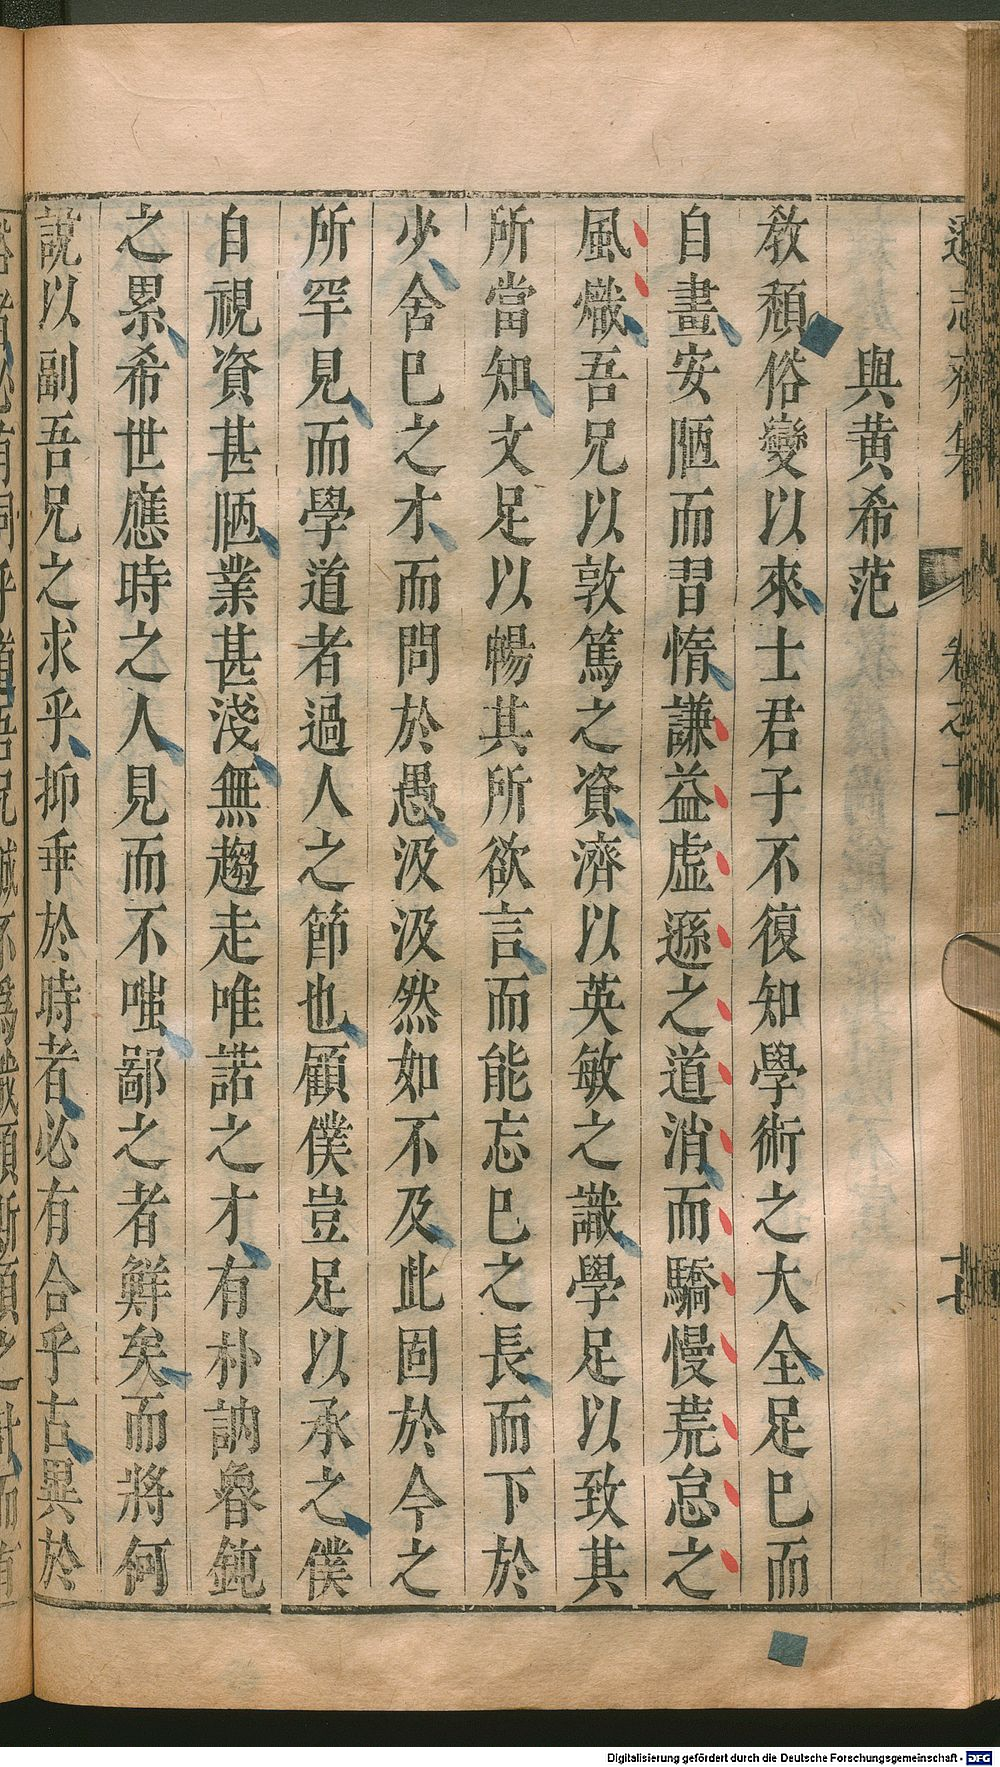 遜志齋集 卷之十一 十七
與黃希范
敎頹俗變以來士君子不復知學術之大全足巳而
自畫安陋而習惰謙益虛遜之道消而驕慢荒怠之
風熾吾兄以敦篤之資濟以英敏之識學足以致其
所當知文足以暢其所欲言而能忘巳之長而下於
少舍巳之才而問於愚汲汲然如不及此固於今之
所罕見而學道者過人之節也顧僕豈足以承之僕
自視資甚陋業甚淺無趨走唯諾之才有朴訥魯鈍
之累希世應時之人見而不嗤鄙之者鮮矣而將何
說以副吾兄之求乎抑垂於時者必有合乎古異於
Digitalisierung gefördert durch die Deutsche Forschungsgemeinschaft - DFG